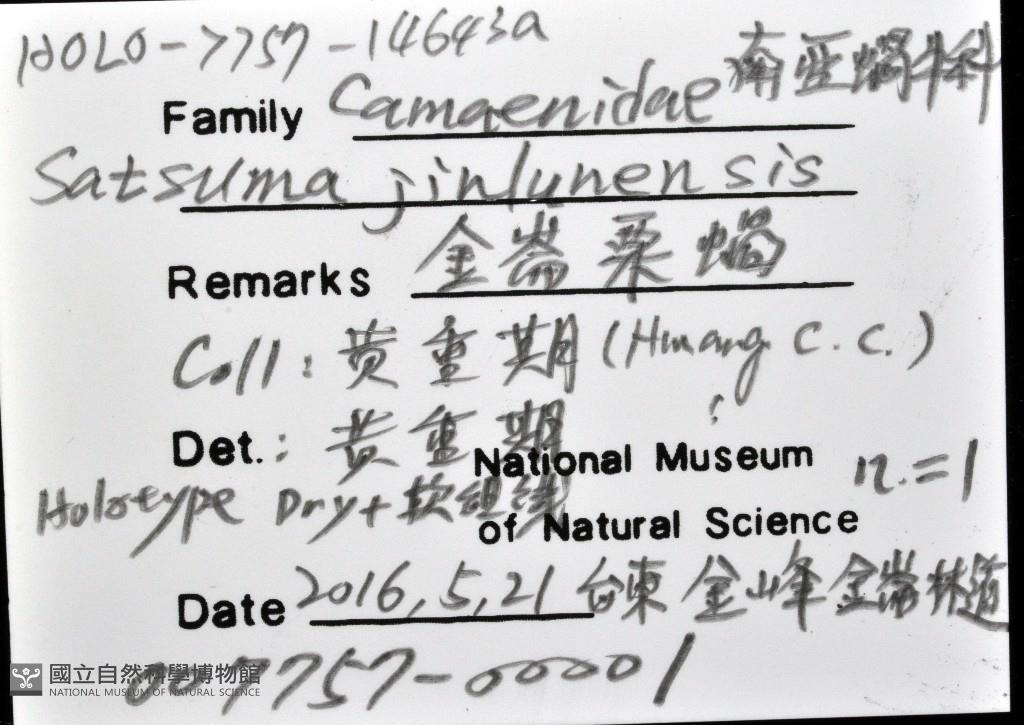 HOLO-7757-14643a
Family Camaenidae 南亚蝸牛科
Satsuma jinlunensis
Remarks 金崙栗蝸
Coll: 黄重期 (Hwang C. C.)
Det.: 黄重期
National Museum n.=1
Holotype Dry+软组织
of Natural Science
Date 2016,5,21 台東 金峰 金崙林道
007757-00001
國立自然科學博物館
NATIONAL MUSEUM OF NATURAL SCIENCE